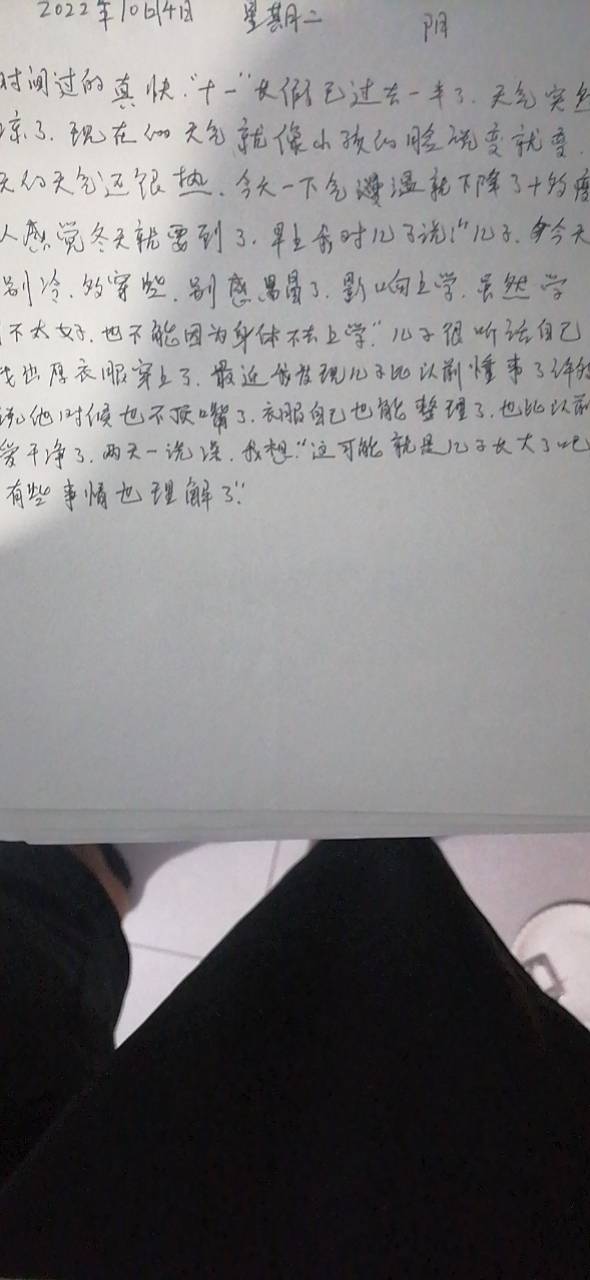 2022年10月4日 星期二 阴
时间过的真快."十一"长假已过去一半了.天气突然
凉了.现在的天气就像小孩的脸说变就变.
天的天气还很热.今天一下气温就下降了十多度
人感觉冬天就要到了.早上我对儿子说:"儿子.今天
别冷.多穿些.别感冒了.影响上学.虽然学
不太好.也不能因为身体不去上学."儿子很听话自己
找出厚衣服穿上了.最近我发现儿子比以前懂事了许多
说他时候也不顶嘴了.衣服自己也能整理了.也比以前
爱干净了.两天一洗澡.我想."这可能就是儿子长大了吧
有些事情也理解了."